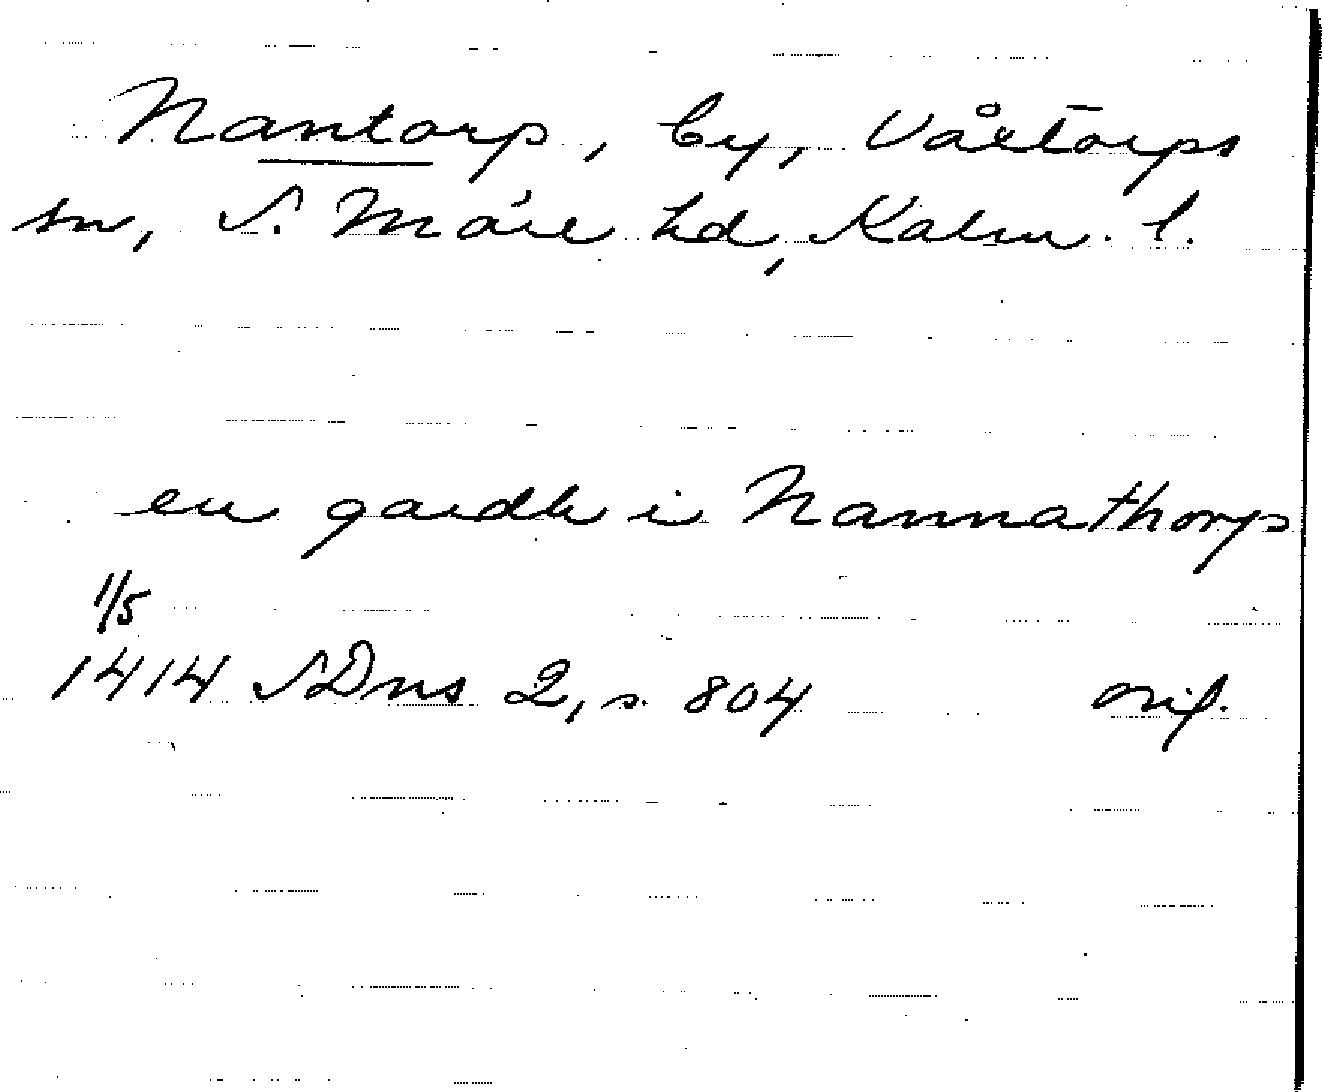 Nantorp, by, Voxtorps
sn, S. Möre hd, Kalm. l.
en gardh i Nannathorp
1/5
1414 SDns 2, s. 804 orig.